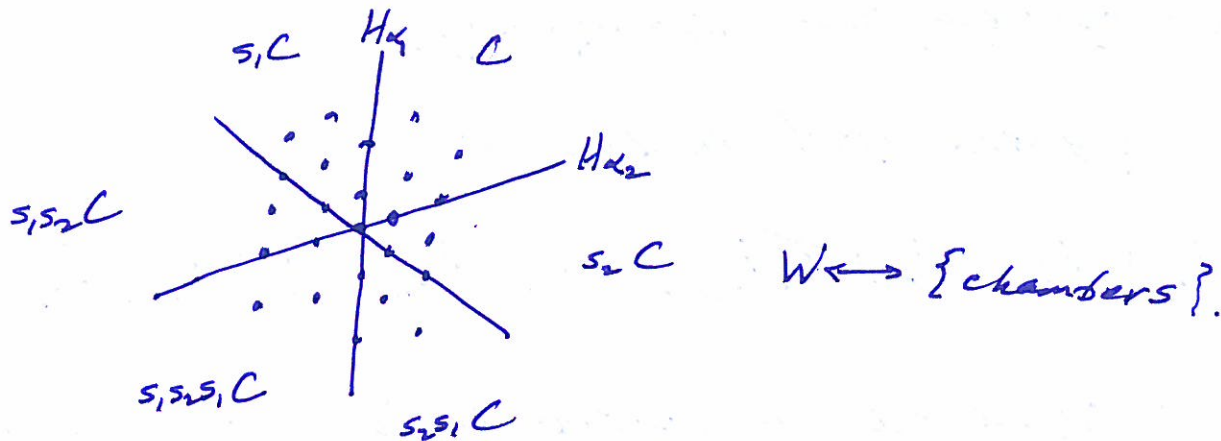 s₁C H_{α₁} C
H_{α₂}
s₁s₂C
s₂C W ⟷ {chambers}.
s₁s₂s₁C
s₂s₁C